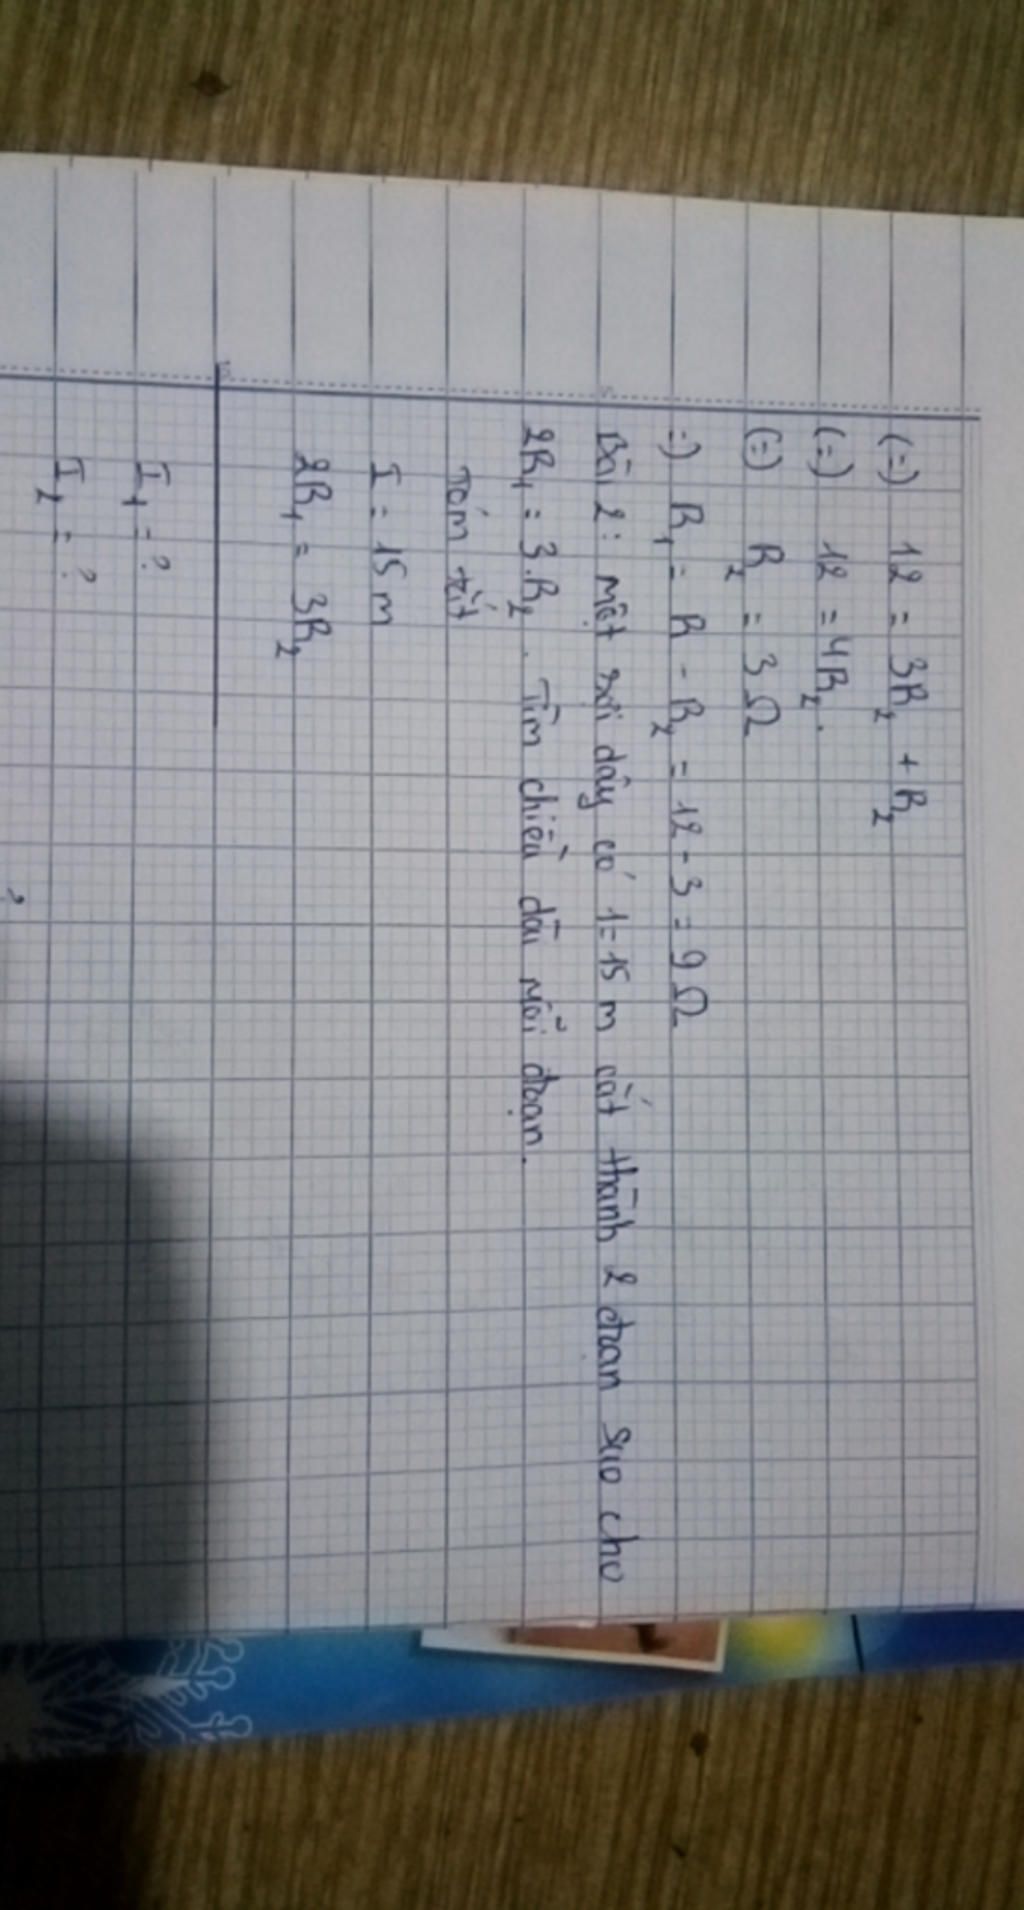 (=) 12 = 3R₂ + R₂
(=) 12 = 4R₂.
(=) R₂ = 3 Ω
=) R₁ = R - R₂ = 12 - 3 = 9 Ω
Bài 2: một sợi dây có l = 15 m cắt thành 2 đoạn sao cho
2R₁ = 3.R₂. Tìm chiều dài mỗi đoạn.
Tóm tắt
I = 15 m
2R₁ = 3R₂
I₁ = ?
I₂ = ?